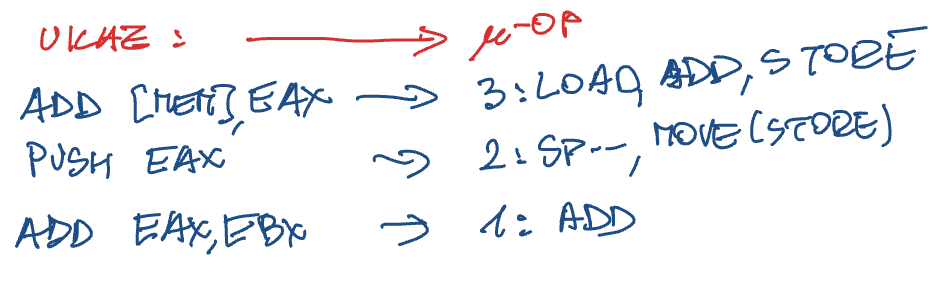 UKAZ: → μ-OP
ADD [MEM], EAX → 3: LOAD, ADD, STORE
PUSH EAX → 2: SP--, MOVE (STORE)
ADD EAX, EBX → 1: ADD